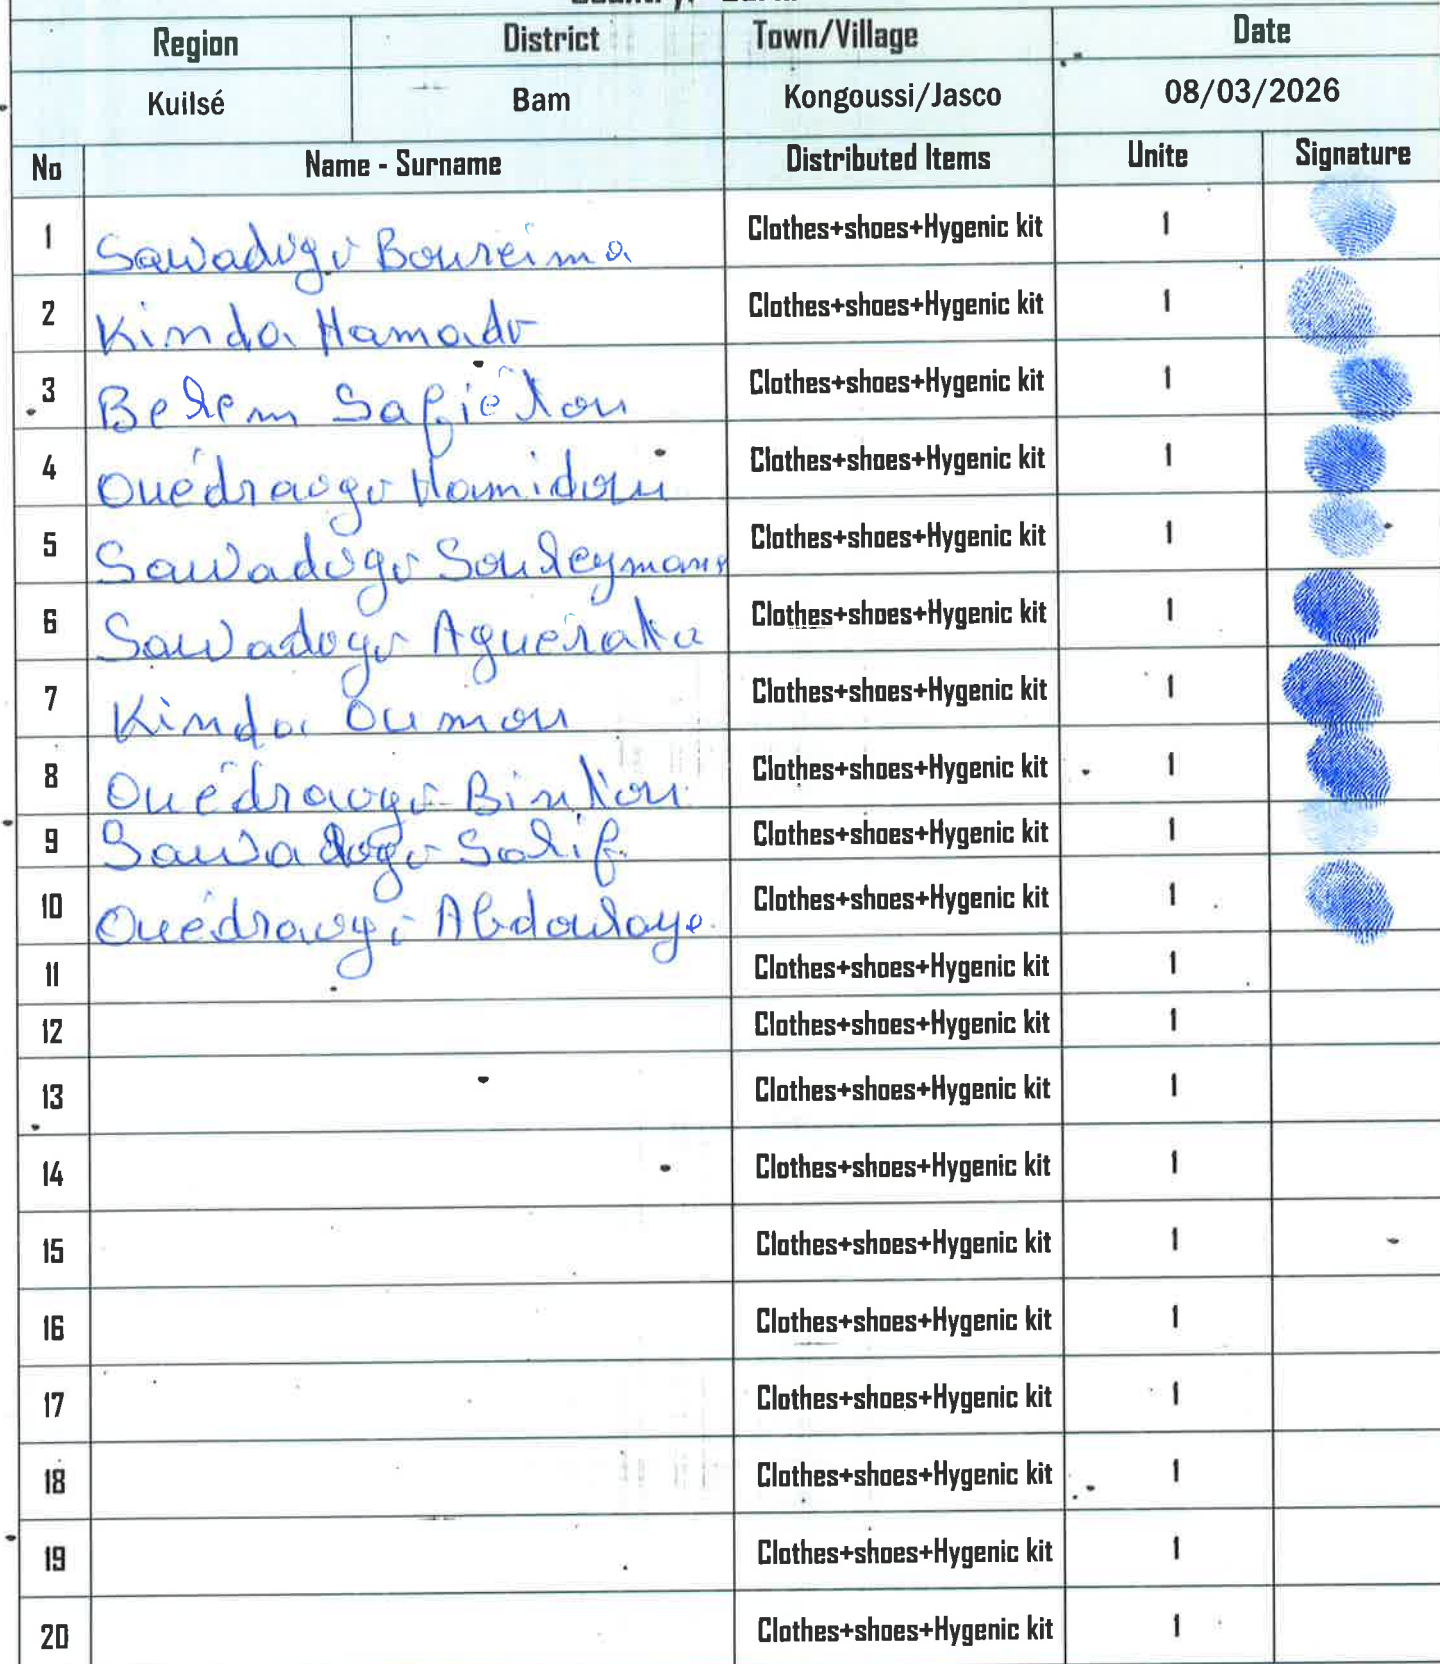 Region District Town/Village Date
Kuilsé Bam Kongoussi/Jasco 08/03/2026
No Name - Surname Distributed Items Unite Signature
1 Sawadogo Boureima Clothes+shoes+Hygenic kit 1
2 Kinda Hamado Clothes+shoes+Hygenic kit 1
3 Belem Safiétou Clothes+shoes+Hygenic kit 1
4 Ouédraogo Hamidou Clothes+shoes+Hygenic kit 1
5 Sawadogo Souleymane Clothes+shoes+Hygenic kit 1
6 Sawadogo Clothes+shoes+Hygenic kit 1
7 Kinda Oumou Clothes+shoes+Hygenic kit 1
8 Ouédraogo Bintou Clothes+shoes+Hygenic kit 1
9 Sawadogo Salif Clothes+shoes+Hygenic kit 1
10 Ouédraogo Abdoulaye Clothes+shoes+Hygenic kit 1
11 Clothes+shoes+Hygenic kit 1
12 Clothes+shoes+Hygenic kit 1
13 Clothes+shoes+Hygenic kit 1
14 Clothes+shoes+Hygenic kit 1
15 Clothes+shoes+Hygenic kit 1
16 Clothes+shoes+Hygenic kit 1
17 Clothes+shoes+Hygenic kit 1
18 Clothes+shoes+Hygenic kit 1
19 Clothes+shoes+Hygenic kit 1
20 Clothes+shoes+Hygenic kit 1